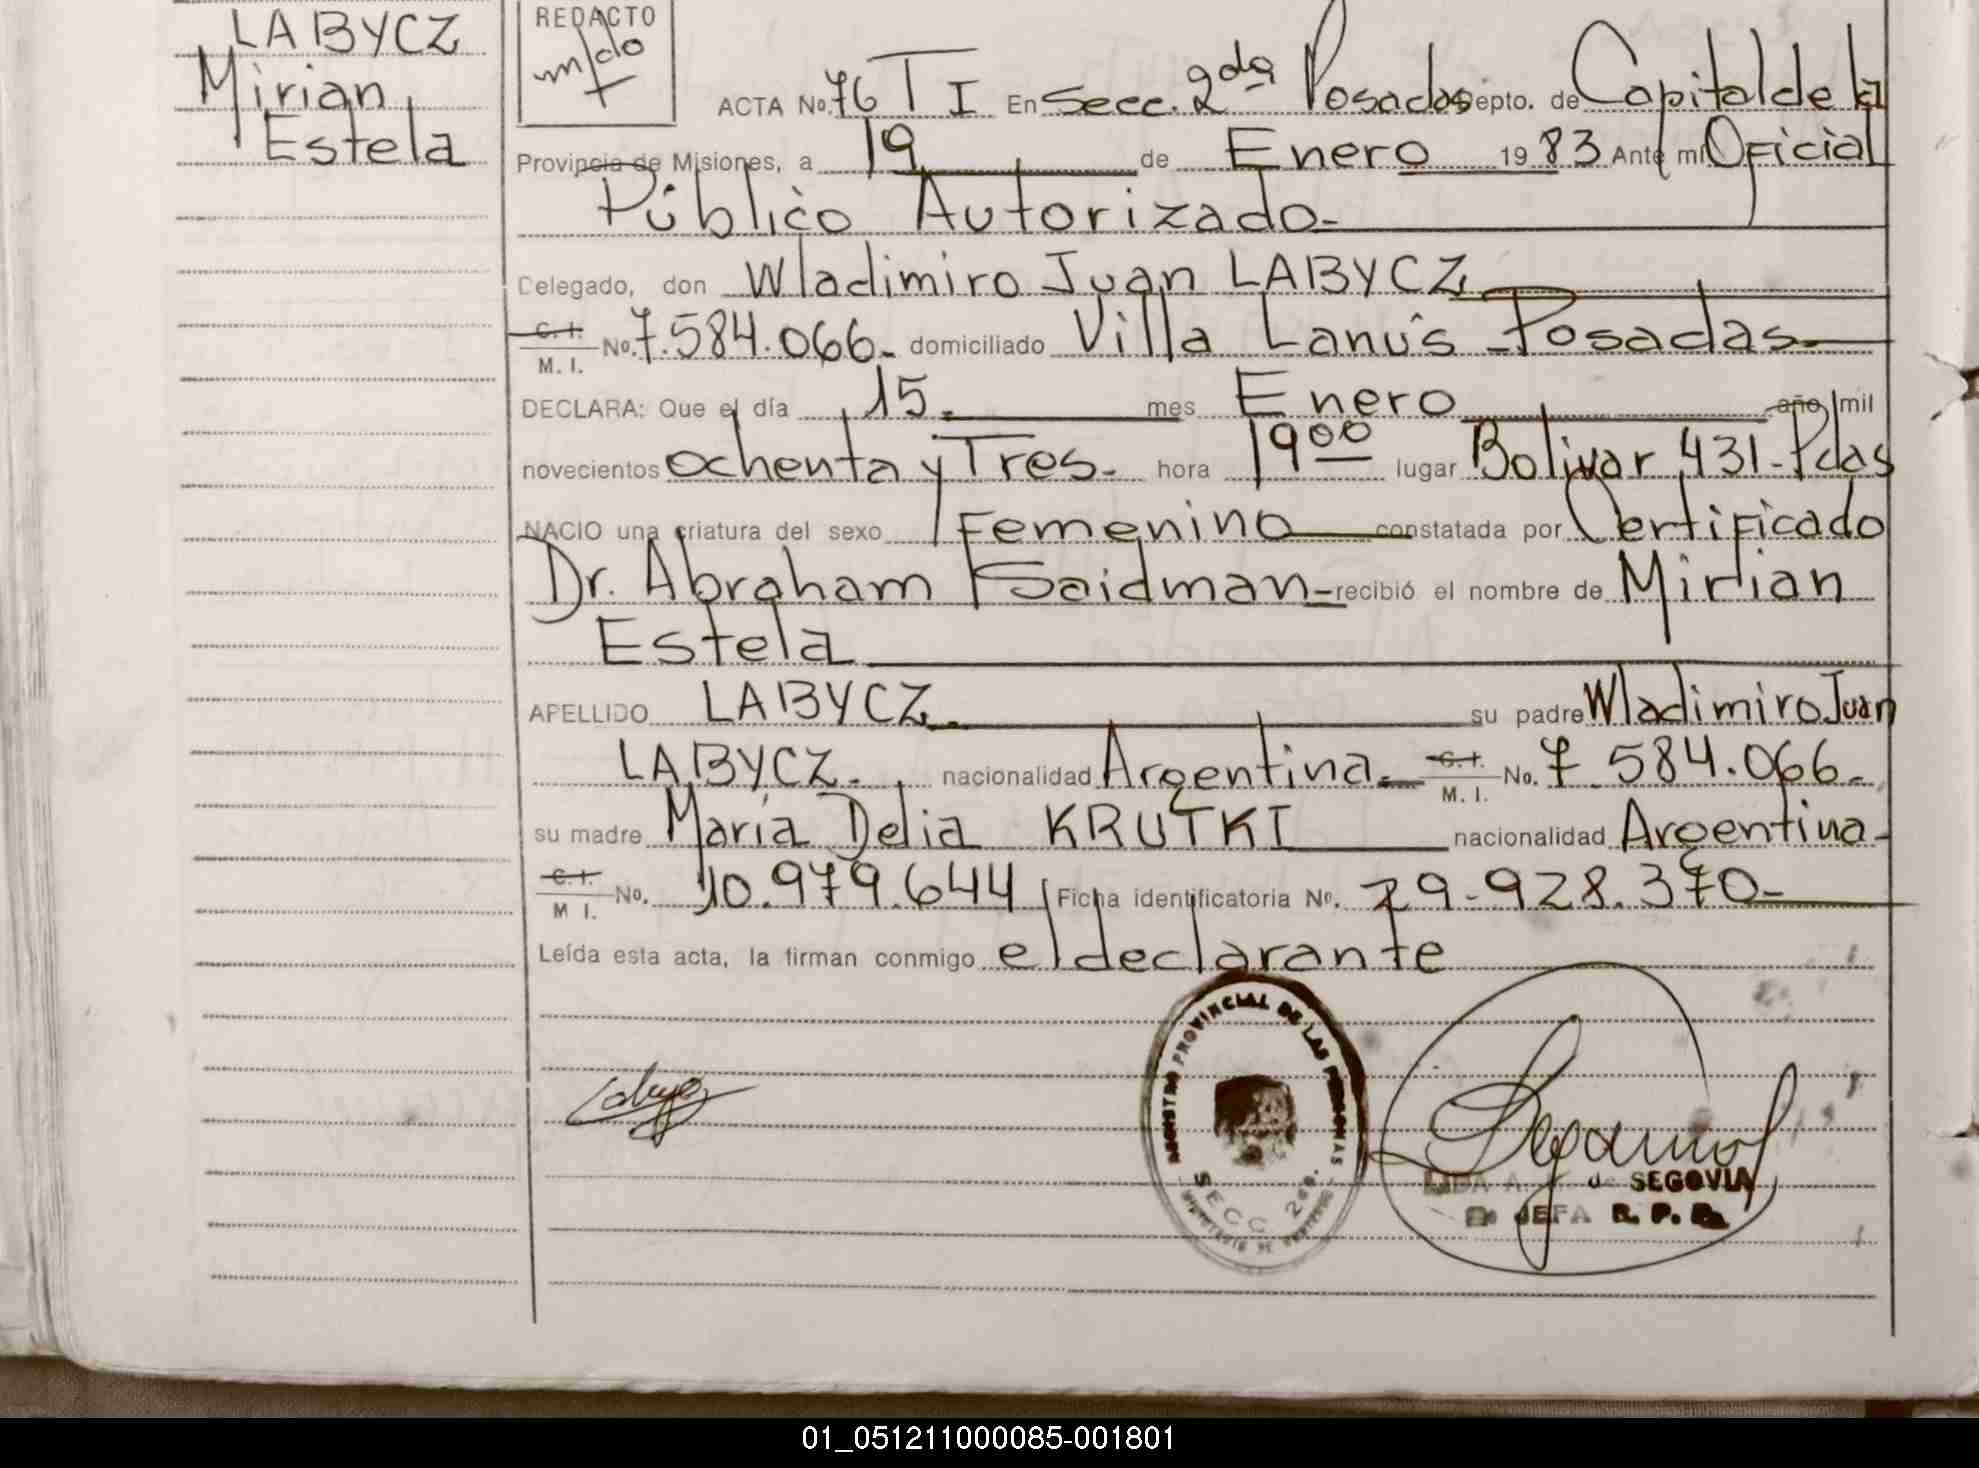 LABYCZ
Mirian
Estela
REDACTO
ACTA No. 76 T I En Secc. 2da Posadas Depto. de Capital de la
Provincia de Misiones, a 19 de Enero 1983 Ante mi Oficial
Público Autorizado-
Delegado, don Wladimiro Juan LABYCZ
C. I.
M. I. No. 7.584.066- domiciliado Villa Lanús - Posadas-
DECLARA: Que el día 15. mes Enero año mil
novecientos ochenta y Tres- hora 19 00 lugar Bolivar 431-Pdas
NACIO una criatura del sexo Femenino constatada por Certificado
Dr. Abraham Saidman- recibió el nombre de Mirian
Estela
APELLIDO LABYCZ. su padre Wladimiro Juan
LABYCZ. nacionalidad Argentina. C. I.
M. I. No. 7 584.066-
su madre María Delia KRUTKI nacionalidad Argentina-
C. I.
M I. No. 10.979.644 Ficha identificatoria No. 29-928.370-
Leída esta acta, la firman conmigo el declarante
REGISTRO PROVINCIAL DE LAS PERSONAS
SECC. 2da.
de SEGOVIA
JEFA R. P. P.
01_051211000085-001801